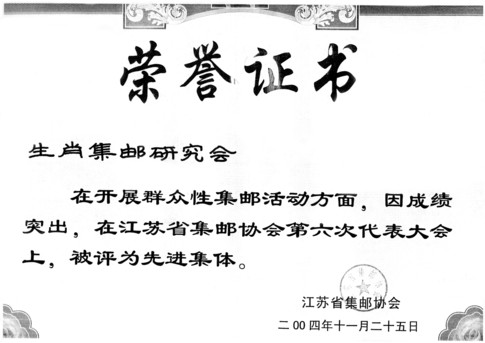 荣誉证书
生肖集邮研究会
在开展群众性集邮活动方面，因成绩
突出，在江苏省集邮协会第六次代表大会
上，被评为先进集体。
江苏省集邮协会
二00四年十一月二十五日